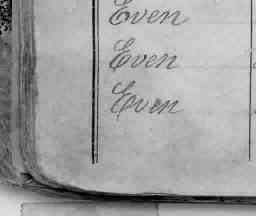 Even
Even
Even